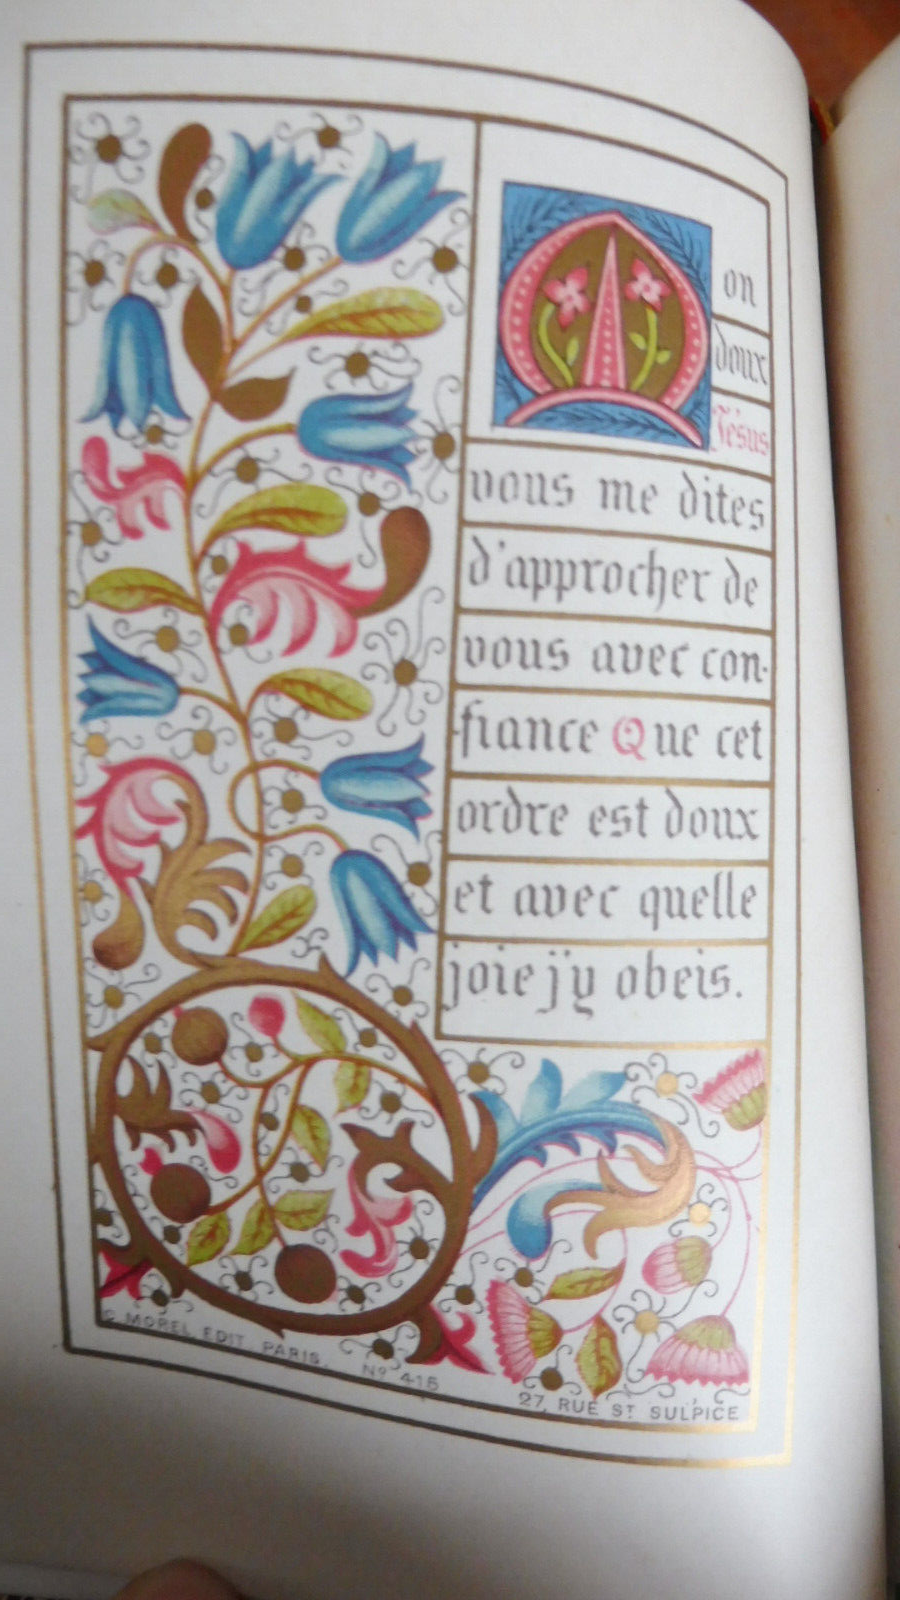 Mon
doux
Jésus
vous me dites
d'approcher de
vous avec con-
fiance Que cet
ordre est doux
et avec quelle
joie j'y obeis.
C MOREL EDIT. PARIS. No 415
27, RUE ST SULPICE